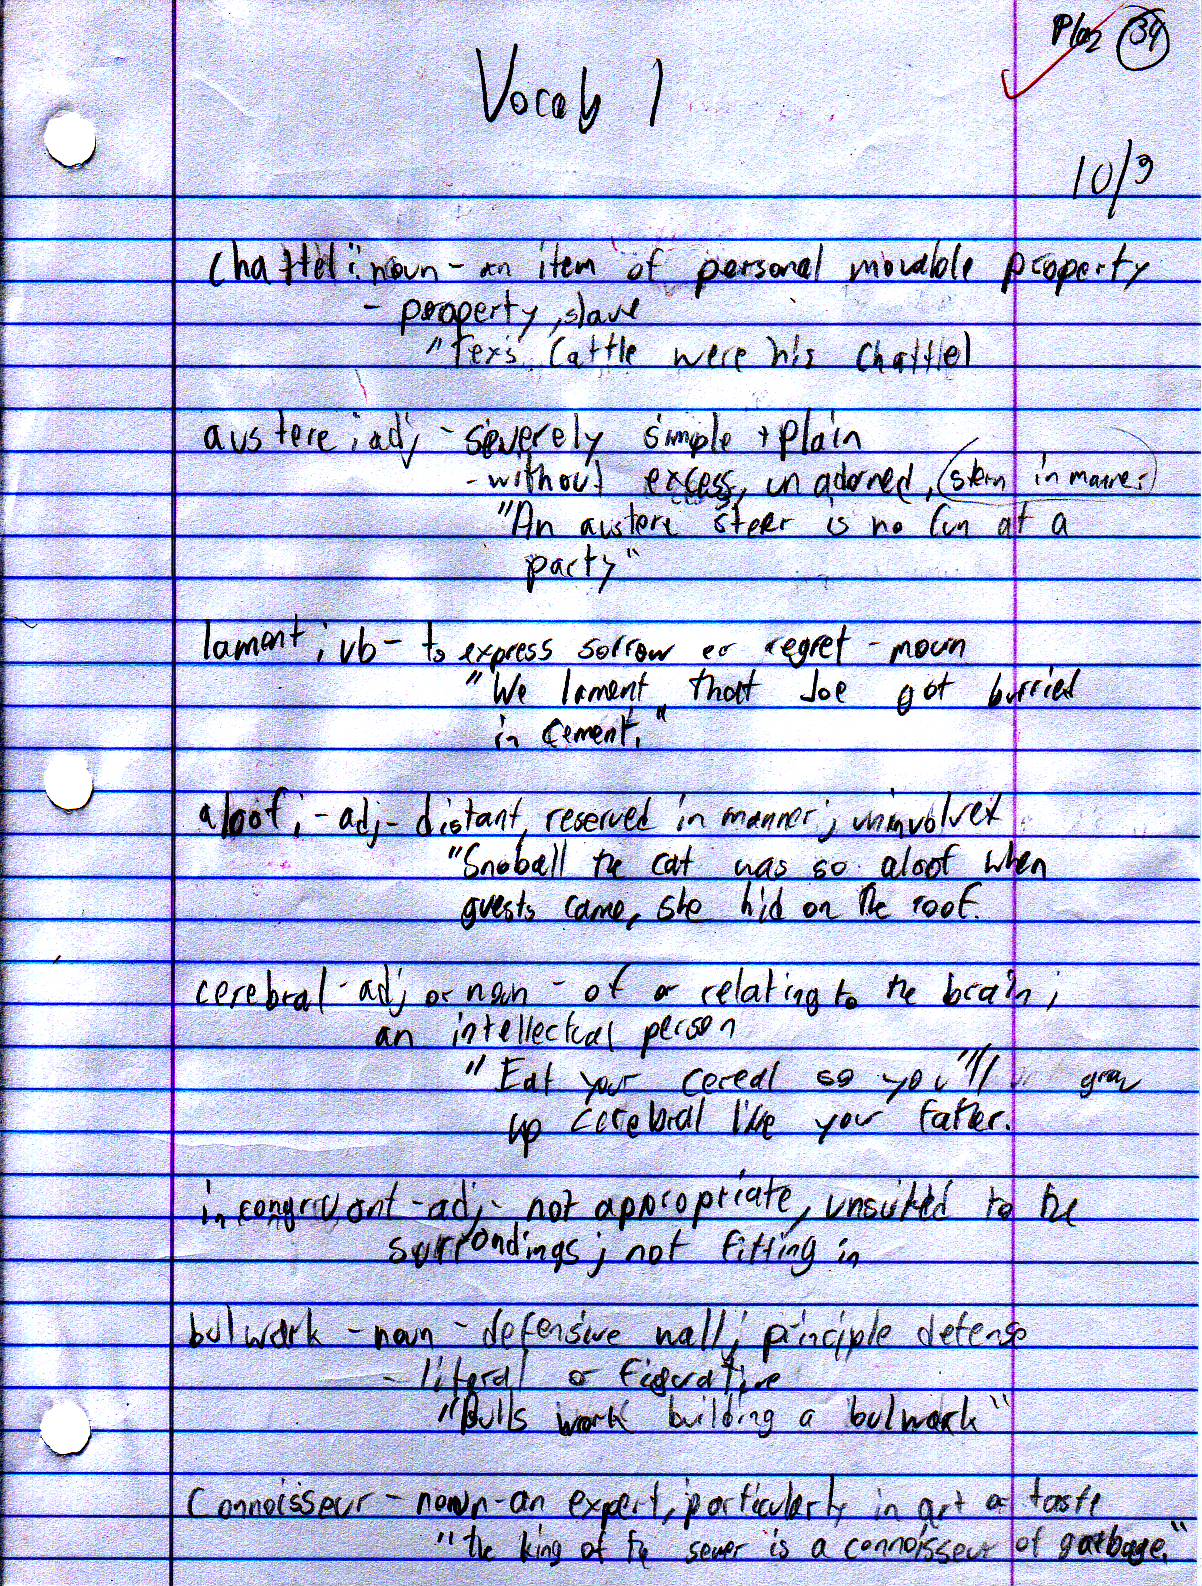 34
Vocab 1
10/9
chattel: noun - an item of personal movable property
- property, slave
"Tex's Cattle were his chattel
austere; adj - severely simple + plain
- without excess, unadorned, stern in manner
"An austere steer is no fun at a
party"
lament; vb - to express sorrow or regret - noun
"We lament that Joe got burried
in cement."
aloof; - adj - distant, reserved in manner; uninvolved
"Snoball the cat was so aloof when
guests came, she hid on the roof.
cerebral - adj or noun - of or relating to the brain;
an intellectual person
"Eat your cereal so you'll grow
up cerebral like your father.
incongruont - adj - not appropriate, unsuited to the
surrondings; not fitting in
bulwark - noun - defensive wall; principle defense
- literal or figurative
"Bulls work building a bulwark"
Connoisseur - noun - an expert, particularly in art or taste
"the king of the sewer is a connoisseur of garbage."